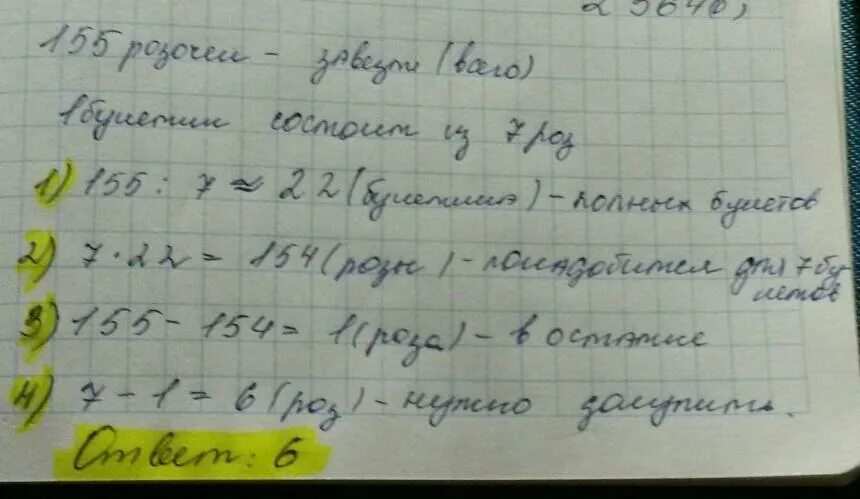 155 розочек - завезли (всего)
1 букетик состоит из 7 роз
1) 155 : 7 ≈ 22 (букетика) - полных букетов
2) 7 · 22 = 154 (розы) - понадобится для 7 бу
кетов
3) 155 - 154 = 1 (роза) - в остатке
4) 7 - 1 = 6 (роз) - нужно докупить.
Ответ: 6